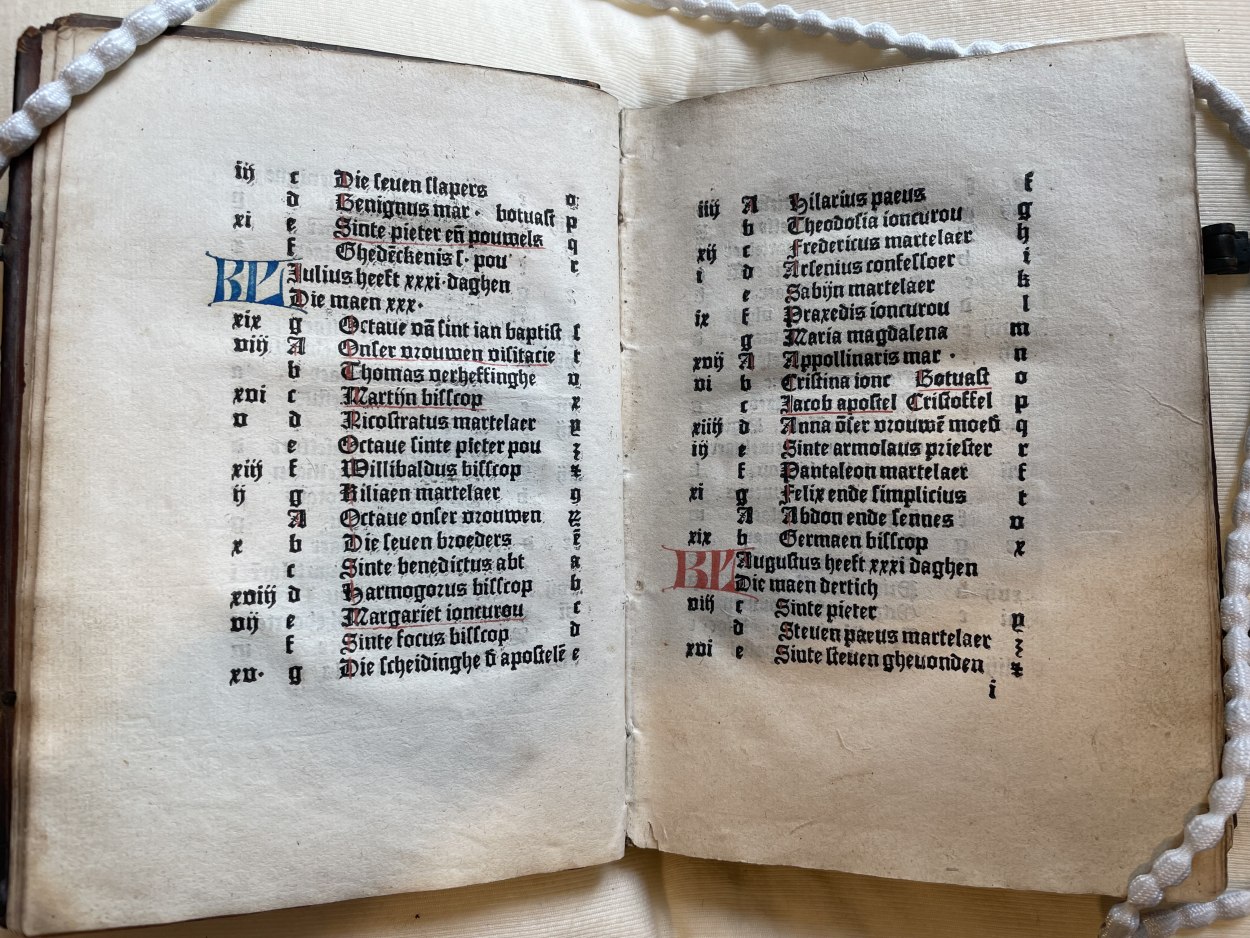 iij c Die seuen slapers o
d Benignus mar· botuast p
xi e Sinte pieter eñ pouwels q
f Ghedēckenis s· pou r
KL Iulius heeft xxxi·daghen
Die maen xxx·
xix g Octaue vā sint ian baptist s
viij A Onser vrouwen visitacie t
b Thomas verheffinghe v
xvi c Martijn bisscop x
v d Nicostratus martelaer y
e Octaue sinte pieter pou z
xiij f Willibaldus bisscop
ij g Kiliaen martelaer 9
A Octaue onser vrouwen
x b Die seuen broeders ē
c Sinte benedictus abt a
xviij d Harmogorus bisscop b
vij e Margariet ioncurou c
f Sinte focus bisscop d
xv· g Die scheidinghe d̄ apostelē e
f
iiij A Hilarius paeus g
b Theodosia ioncurou h
xij c Fredericus martelaer i
i d Arsenius confessoer k
e Sabijn martelaer l
ix f Praxedis ioncurou m
g Maria magdalena n
xvij A Appollinaris mar· o
vi b Cristina ionc Botuast p
c Jacob apostel Cristoffel q
xiiij d Anna ōser vrouwē moed̄ r
iij e Sinte armolaus priester s
f Pantaleon martelaer t
xi g Felix ende simplicius v
A Abdon ende sennes x
xix b Germaen bisscop
KL Augustus heeft xxxi daghen
Die maen dertich
viij c Sinte pieter y
d Steuen paeus martelaer z
xvi e Sinte steuen gheuonden
i